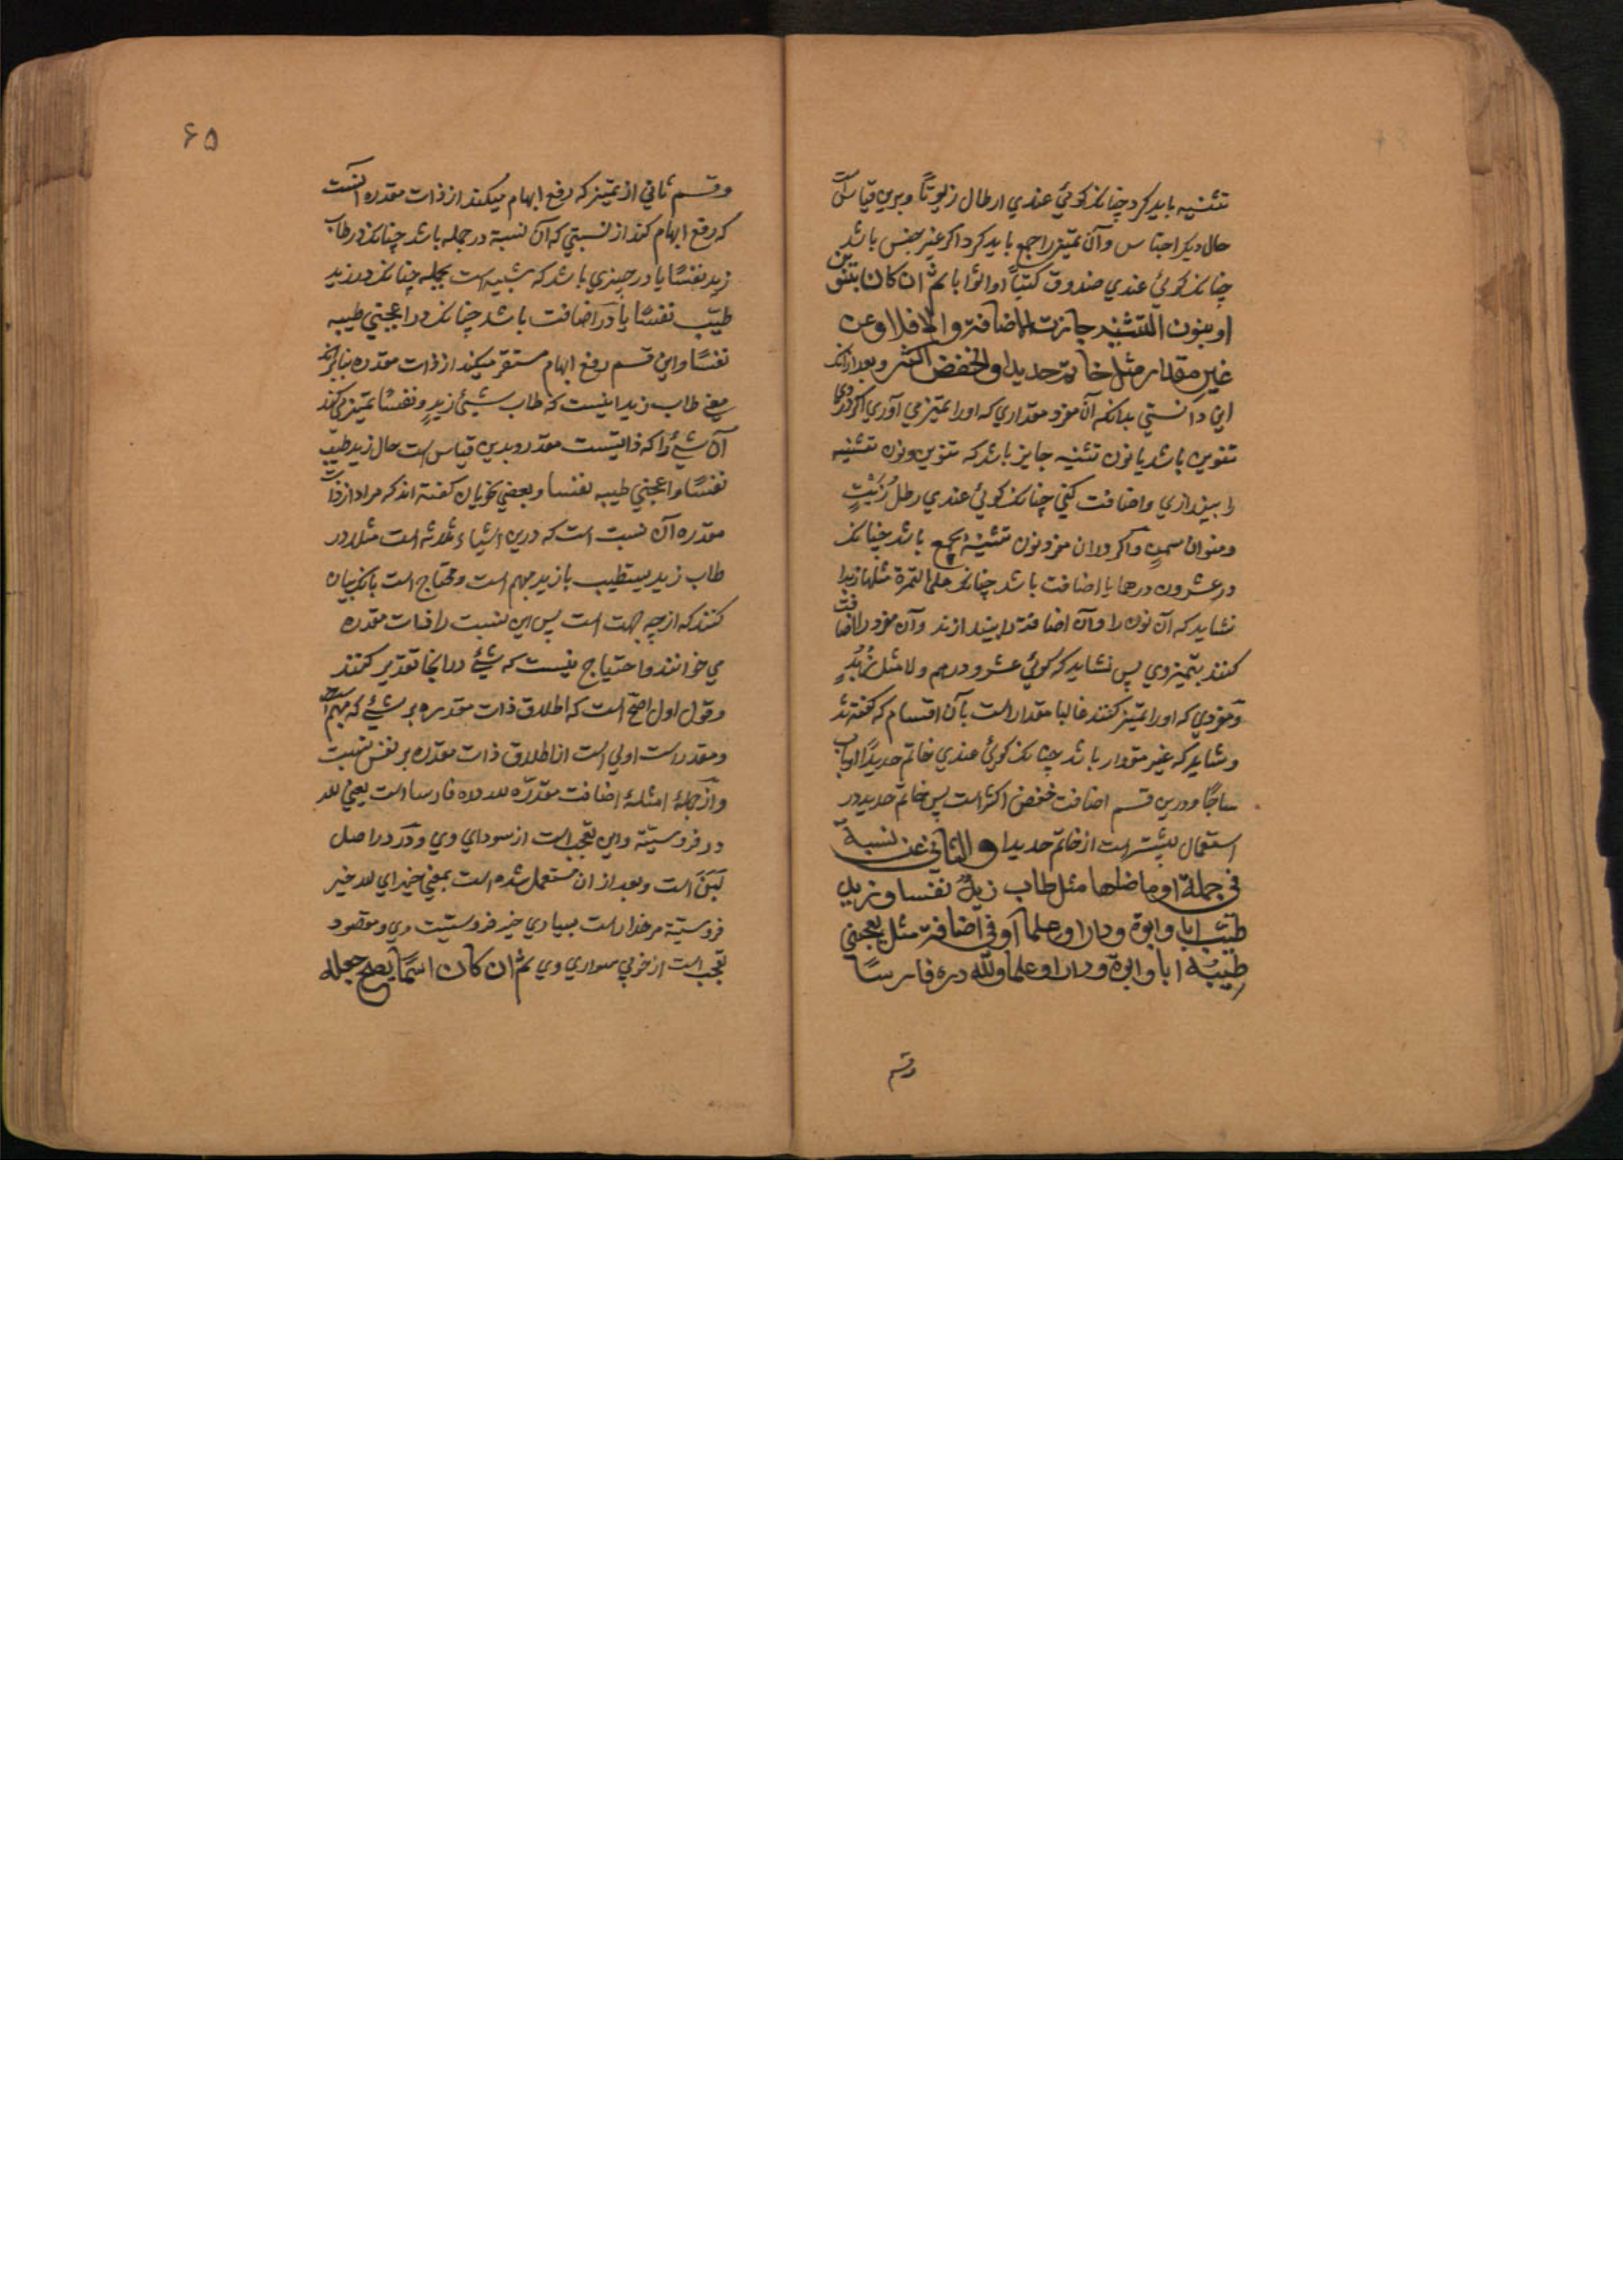 تثنیه باید کرد چنانکه کوئي عندي ارطال زیوتاً وبرین قیاس است
حال دیکر اجناس وآن تمیز را جمع باید کرد اکر غیر جنس باشد
چنانکه کوئي عندي صندوق کتباً او اثوابا ثم ان کان بتنوین
او بنون التثنیه جازت الاضافة والا فلا وعن
غیر مقدار مثل خاتم حدیدا والخفض اکثر وبعد ازانکه
این دانستي بدانکه آن مفرد مقداري که اورا تمیز مي آوري اکر در وي
تنوین باشد یا نون تثنیه جایز باشد که تنوین ونون تثنیه
را بیندازي واضافت کني چنانکه کوئي عندي رطلُ زَیْتٍ
ومنوان سمنٍ واکر دران مفرد نون تثنیه جمع باشد چنانکه
در عشرون درهما یا اضافت باشد چنانکه علی التمرة مثلها زبدا
نشاید که آن نون را وآن اضافة را بیندازند وآن مفرد را اضافت
کنند بتمیز وي پس نشاید که کوئي عشرو درهم ولا مثل زُبْدٍ
ومفردي که اورا تمیز کنند غالبا مقدار است بآن اقسام که کفته شد
وشاید که غیر مقدار باشد چنانکه کوئي عندي خاتم حدیداً او باب
ساجاً ودرین قسم اضافت خفض اکثر است پس خاتم حدید در
استعمال بیشتر است از خاتم حدیدا والثاني عن نسبة
في جملة او ما ضاها مثل طاب زیدٌ نفسا وزید
طیّب ابا وابوة ودارا وعلما او في اضافة مثل یعجبني
طیبُه ابا وابوة ودارا وعلما ولله دره فارسًا
وقسم
۶۵
وقسم ثاني از تمیز که رفع ابهام میکند از ذات مقدره آنست
که رفع ابهام کند از نسبتي که آن نسبة در جمله باشد چنانکه در طاب
زید نفسًا یا در چیزي باشد که شبیه است بجمله چنانکه در زید
طیّب نفسًا یا در اضافت باشد چنانکه در اعجبني طیبه
نفسًا واین قسم رفع ابهام مستقر میکند از ذات مقدره بنابرآنکه
معني طاب زید اینست که طاب شيئ زیدٍ ونفسًا تمیز مي کند
آن شيئ را که ذاتیست مقدر وبدین قیاس است حال زید طیّب
نفسًا واعجبني طیبه نفسا وبعضي نحویان کفته اند که مراد از ذات
مقدره آن نسبت است که درین اشیاء ثلاثه است مثلا در
طاب زید نسبت طیب با زید مبهم است ومحتاج است بآنکه بیان
کنند که از چه جهت است پس این نسبت را ذات مقدره
مي خوانند واحتیاج نیست که شيئ در اینجا تقدیر کنند
وقول اول اصح است که اطلاق ذات مقدره بر شيئ که مبهم است
ومقدر است اولي است از اطلاق ذات مقدره بر نفس نسبت
واز جملهٔ امثلهٔ اضافت مقدره لله دره فارسا است یعني لله
در فروسیّته واین تعجب است از سوداي وي ودَرّ در اصل
لَبَن است وبعد از ان مستعمل شده است بمعني خیر اي لله خیر
فروسیّته مر خدا راست بسیاري خیر فروسیّت وي ومقصود
تعجب است از خوبي سواري وي ثم ان کان اسمًا یصح جعله